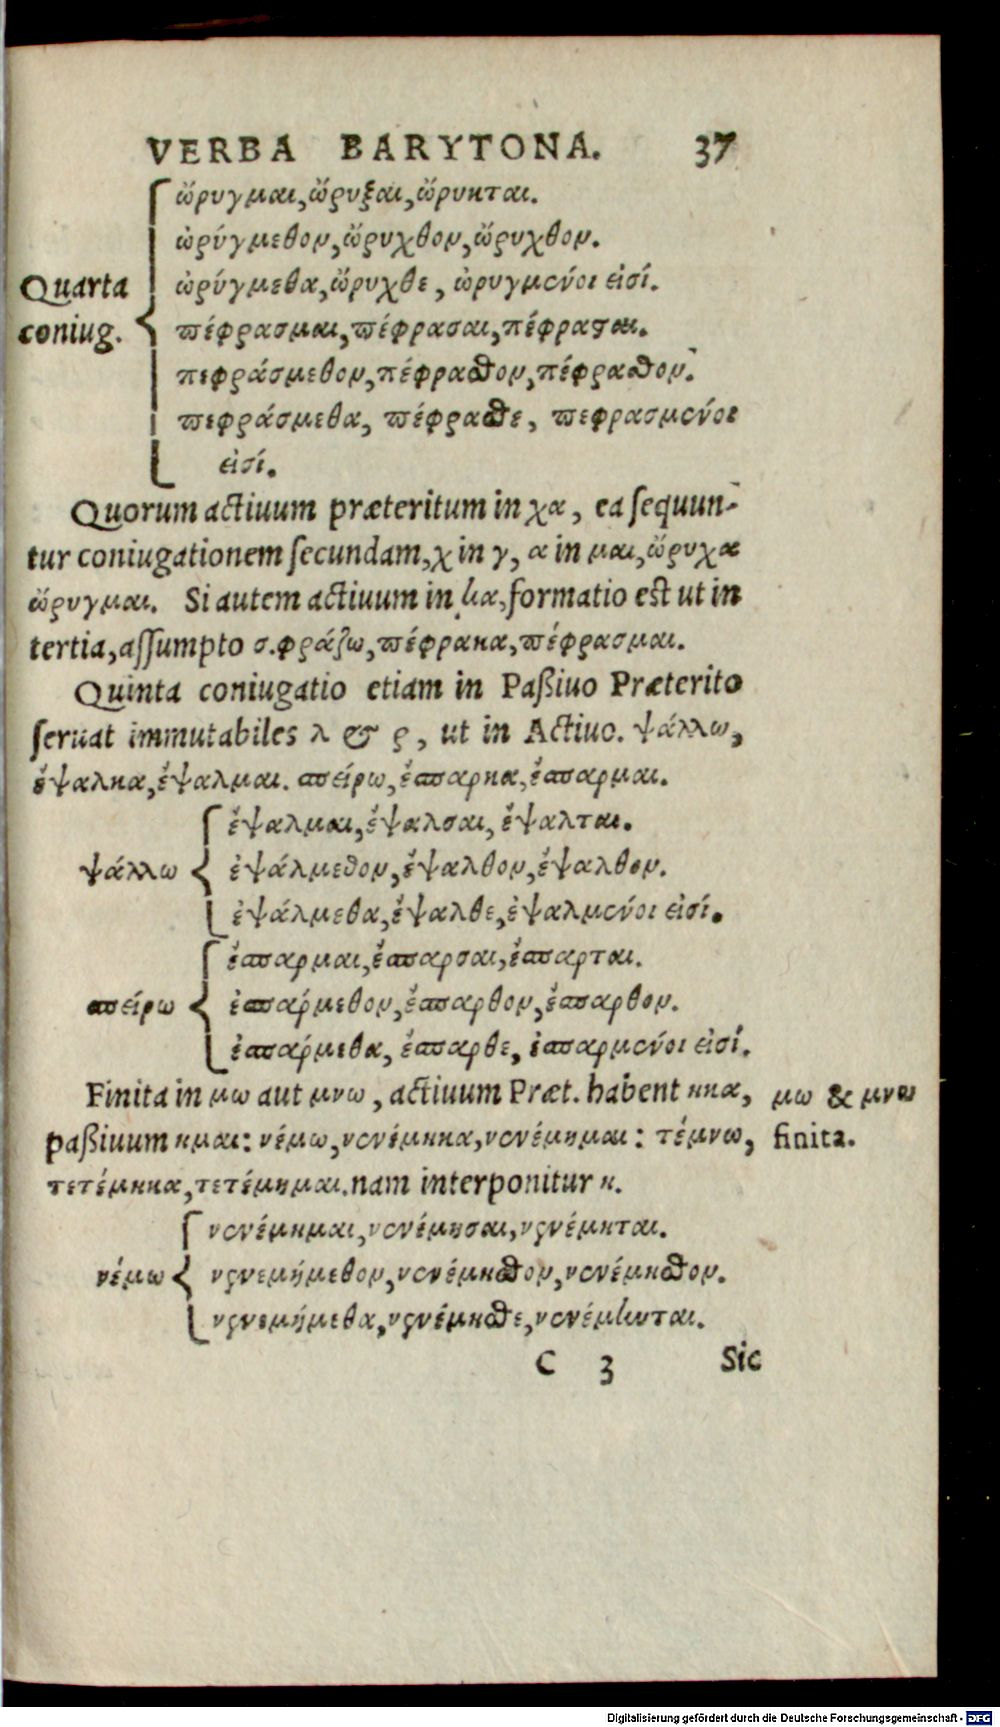 VERBA BARYTONA. 37
ὤρυγμαι, ὤρυξαι, ὤρυκται.
ὠρύγμεθον, ὤρυχθον, ὤρυχθον.
Quarta
coniug.
ὠρύγμεθα, ὤρυχθε, ὠρυγμένοι εἰσί.
πέφρασμαι, πέφρασαι, πέφρασαι.
πεφράσμεθον, πέφρασθον, πέφρασθον.
πεφράσμεθα, πέφρασθε, πεφρασμένοι
εἰσί.
Quorum actiuum præteritum in χα, ea sequun-
tur coniugationem secundam, χ in γ, α in μαι, ὤρυχα
ὤρυγμαι. Si autem actiuum in κα, formatio est ut in
tertia, assumpto σ. φράζω, πέφρακα, πέφρασμαι.
Quinta coniugatio etiam in Paßiuo Præterito
seruat immutabiles λ & ρ, ut in Actiuo. ψάλλω,
ἔψαλκα, ἔψαλμαι. σπείρω, ἔσπαρκα, ἔσπαρμαι.
ἔψαλμαι, ἔψαλσαι, ἔψαλται.
ψάλλω ἐψάλμεθον, ἔψαλθον, ἔψαλθον.
ἐψάλμεθα, ἔψαλθε, ἐψαλμένοι εἰσί.
ἔσπαρμαι, ἔσπαρσαι, ἔσπαρται.
σπείρω ἐσπάρμεθον, ἔσπαρθον, ἔσπαρθον.
ἐσπάρμεθα, ἔσπαρθε, ἐσπαρμένοι εἰσί.
Finita in μω aut μνω, actiuum Præt. habent ηκα,
paßiuum ημαι: νέμω, νενέμηκα, νενέμημαι: τέμνω,
τετέμηκα, τετέμημαι. nam interponitur η.
μω & μνω
finita.
νενέμημαι, νενέμησαι, νενέμηται.
νέμω νενεμήμεθον, νενέμησθον, νενέμησθον.
νενεμήμεθα, νενέμησθε, νενέμηνται.
C 3 Sic
Digitalisierung gefördert durch die Deutsche Forschungsgemeinschaft - DFG